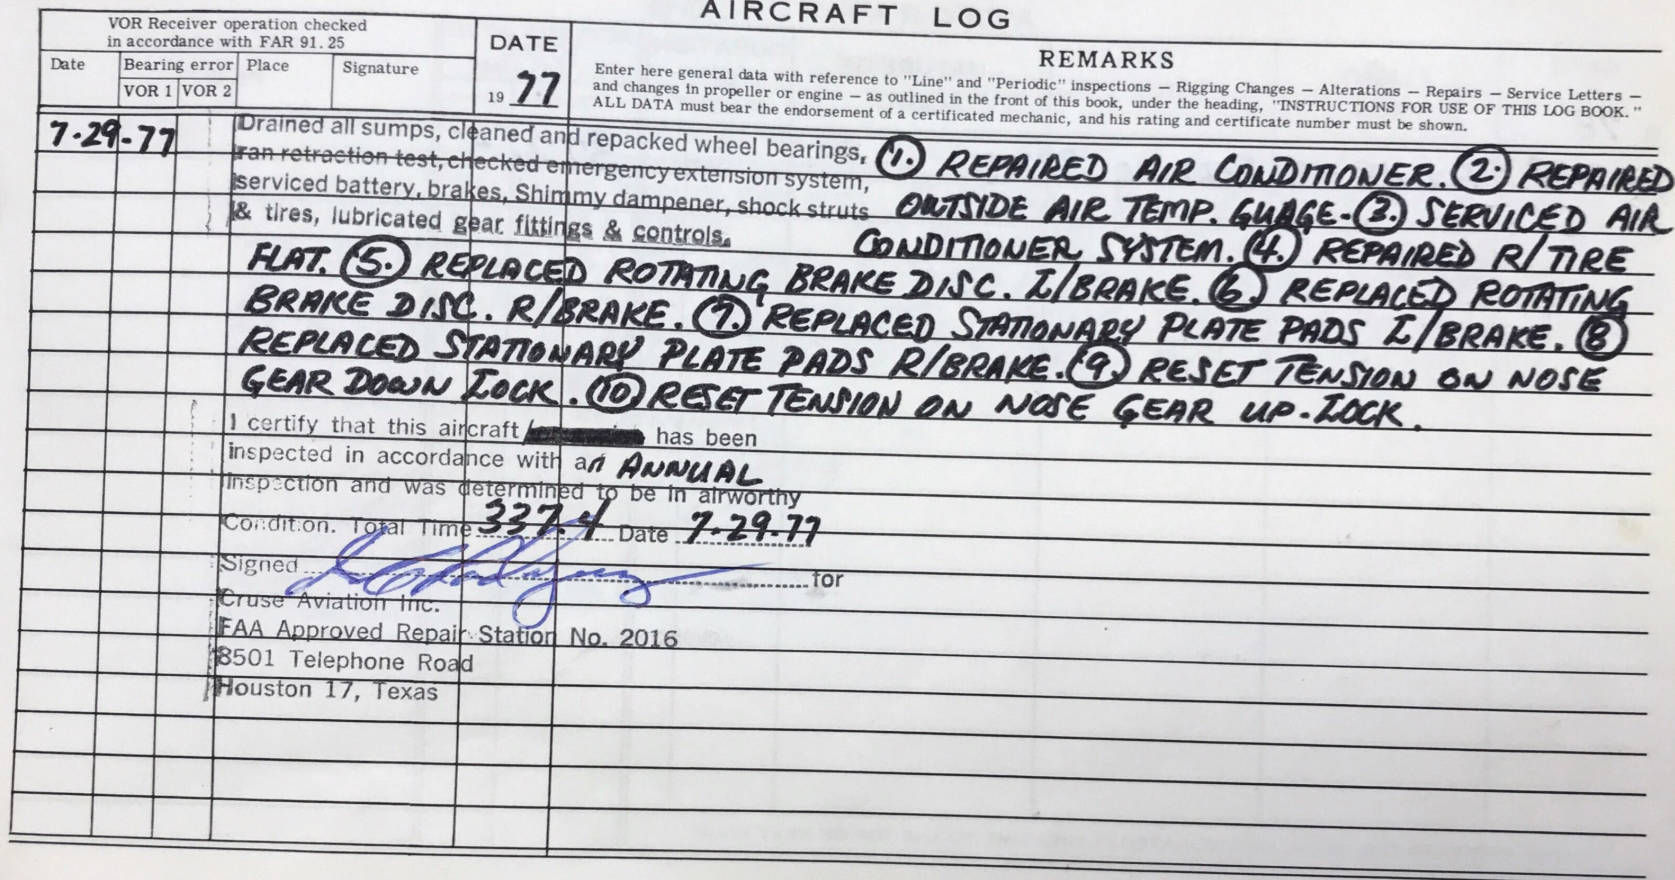 AIRCRAFT LOG
VOR Receiver operation checked
in accordance with FAR 91.25
DATE
REMARKS
Date
Bearing error
Place
Signature
VOR 1 VOR 2
19 77
Enter here general data with reference to "Line" and "Periodic" inspections — Rigging Changes — Alterations — Repairs — Service Letters —
and changes in propeller or engine — as outlined in the front of this book, under the heading, "INSTRUCTIONS FOR USE OF THIS LOG BOOK."
ALL DATA must bear the endorsement of a certificated mechanic, and his rating and certificate number must be shown.
7-29-77
Drained all sumps, cleaned and repacked wheel bearings,
ran retraction test, checked emergency extension system,
serviced battery, brakes, Shimmy dampener, shock struts
& tires, lubricated gear fittings & controls.
1. REPAIRED AIR CONDITIONER. 2. REPAIRED
OUTSIDE AIR TEMP. GUAGE- 3. SERVICED AIR
CONDITIONER SYSTEM. 4. REPAIRED R/TIRE
FLAT. 5. REPLACED ROTATING BRAKE DISC. L/BRAKE. 6. REPLACED ROTATING
BRAKE DISC. R/BRAKE. 7. REPLACED STATIONARY PLATE PADS L/BRAKE. 8
REPLACED STATIONARY PLATE PADS R/BRAKE. 9. RESET TENSION ON NOSE
GEAR DOWN LOCK. 10 RESET TENSION ON NOSE GEAR UP-LOCK.
I certify that this aircraft/ has been
inspected in accordance with an ANNUAL
Inspection and was determined to be in airworthy
Condition. Total Time 337.4 Date 7-29-77
Signed for
Cruse Aviation Inc.
FAA Approved Repair Station No. 2016
8501 Telephone Road
Houston 17, Texas